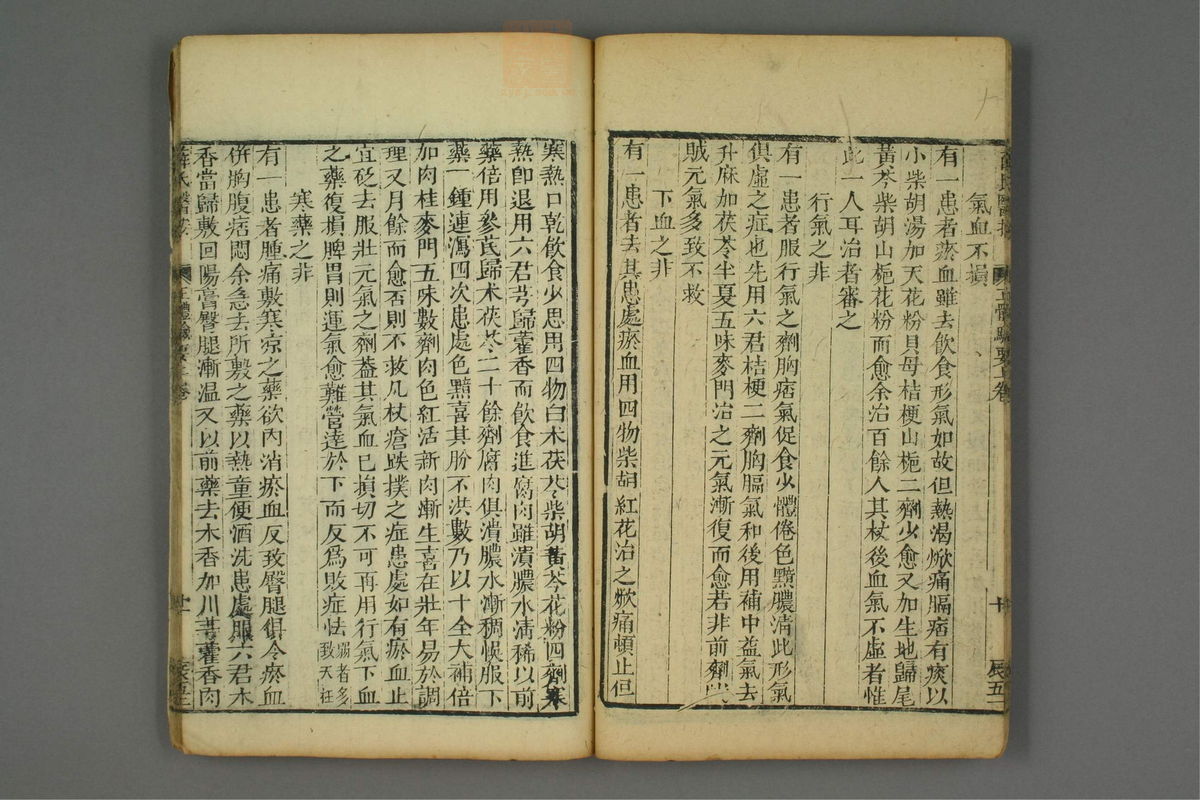 薛氏醫按 正體類要上卷 十 辰五
氣血不損
有一患者瘀血雖去飲食形氣如故但熱渴焮痛膈痞有痰以
小柴胡湯加天花粉貝母桔梗山梔二劑少愈又加生地歸尾
黃芩柴胡山梔花粉而愈余治百餘人其杖後血氣不虛者惟
此一人耳治者審之
行氣之非
有一患者服行氣之劑胸痞氣促食少體倦色黯膿清此形氣
俱虛之症也先用六君桔梗二劑胸膈氣和後用補中益氣去
升麻加茯苓半夏五味麥門治之元氣漸復而愈若非前劑
賊元氣多致不救
下血之非
有一患者去其患處瘀血用四物柴胡紅花治之焮痛頓止但
寒熱口乾飲食少思用四物白朮茯苓柴胡黃芩花粉四劑寒
熱即退用六君芎歸藿香而飲食進腐肉雖潰膿水清稀以前
藥倍用參芪歸朮茯苓二十餘劑腐肉俱潰膿水漸稠悞服下
藥一鍾連瀉四次患處色黯喜其脉不洪數乃以十全大補倍
加肉桂麥門五味數劑肉色紅活新肉漸生喜在壯年易於調
理又月餘而愈否則不救凡杖瘡跌撲之症患處如有瘀血止
宜砭去服壯元氣之劑蓋其氣血已損切不可再用行氣下血
之藥復損脾胃則運氣愈難營達於下而反爲敗症怯弱者多致夭枉
寒藥之非
有一患者腫痛敷寒凉之藥欲內消瘀血反致臀腿俱冷瘀血
併胸腹痞悶余急去所敷之藥以熱童便酒洗患處服六君木
香當歸敷回陽膏臀腿漸温又以前藥去木香加川芎藿香肉
薛氏醫按 正體類要上卷 十